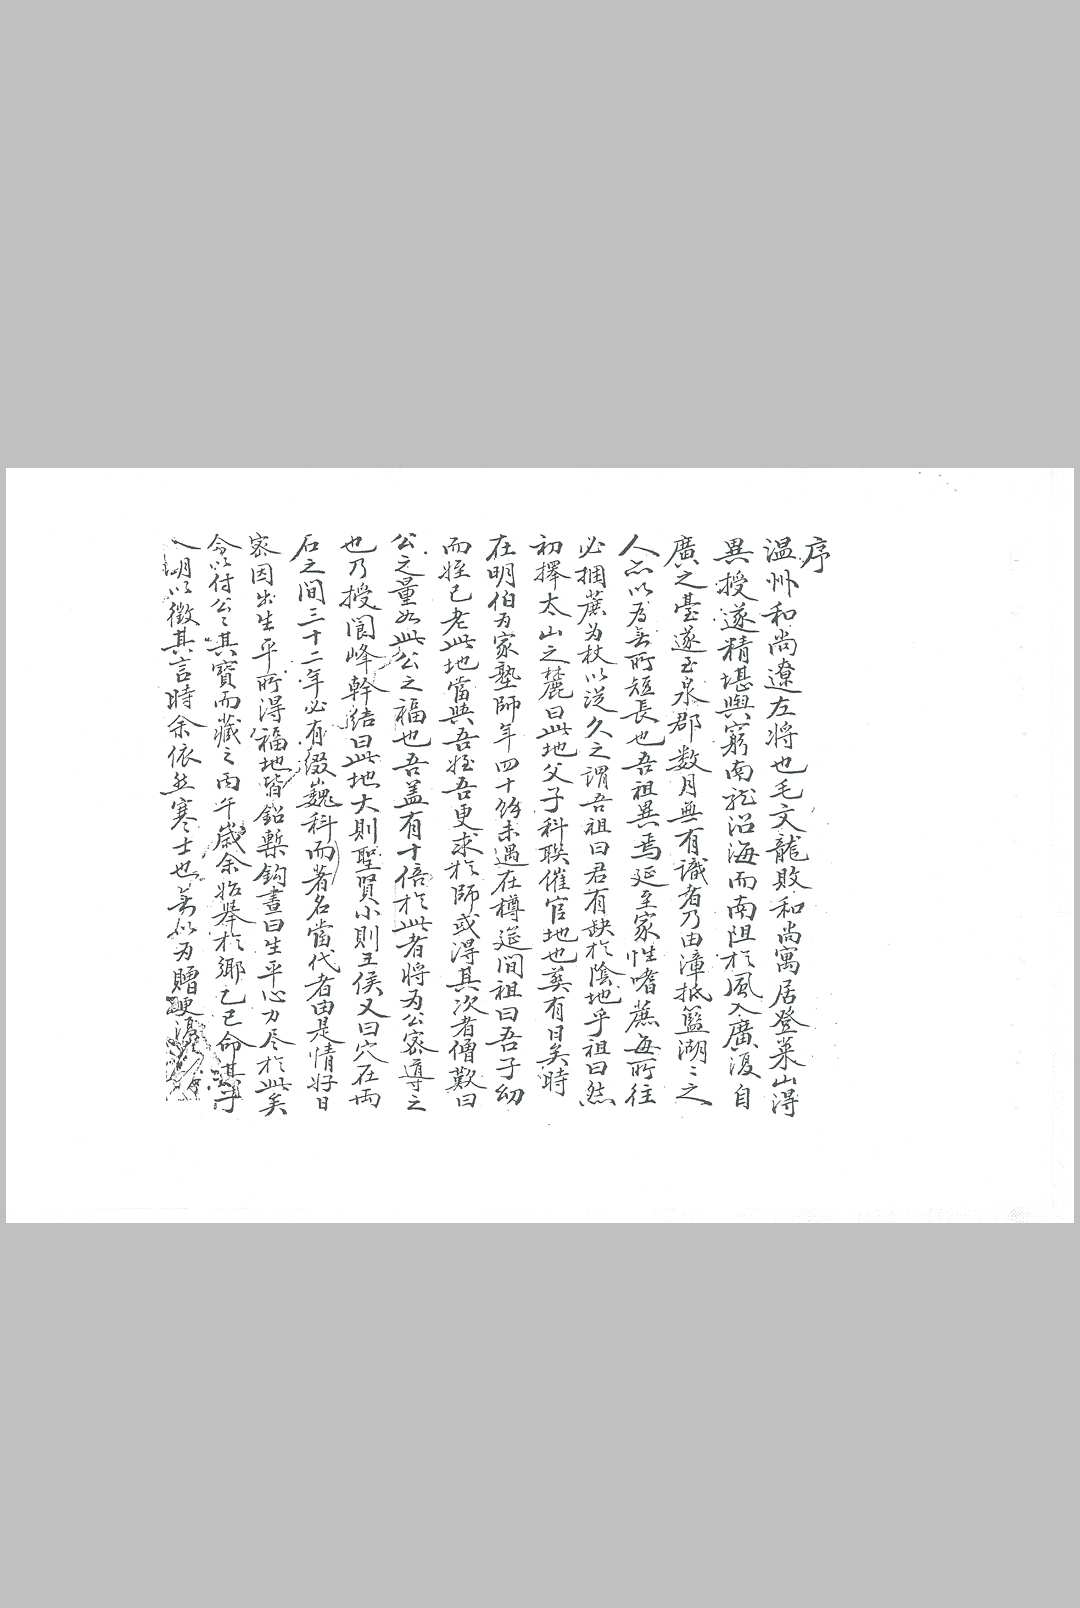 序
温州和尚遼左將也毛文龍敗和尚寓居登萊山得
異授遂精堪輿窮南龍沿海而南阻於風入廣復自
廣之臺遂至泉郡数月無有識者乃由漳抵籃湖〻之
人亦以為無所短長也吾祖異焉延至家性嗜蔗每所往
必捆蔗为杖以從久之謂吾祖曰君有缺於陰地乎祖曰然
初擇太山之麓曰此地父子科聯催官地也葬有日矣時
在明伯为家塾師年四十餘未遇在樽筵間祖曰吾子幼
而姪已老此地當與吾姪吾更求於師或得其次者僧歎曰
公之量如此公之福也吾盖有十倍於此者將为公密導之
也乃授閬峰幹結曰此地大則聖賢小則王侯又曰穴在両
石之間三十二年必有掇巍科而著名當代者由是情好日
密因出生平所得福地皆鉛槧鈎畫曰生平心力尽於此矣
今以付公〻其寶而藏之丙午歲余始舉於鄉乙巳命其子
明以徵其言時余依然寒士也 以为贈